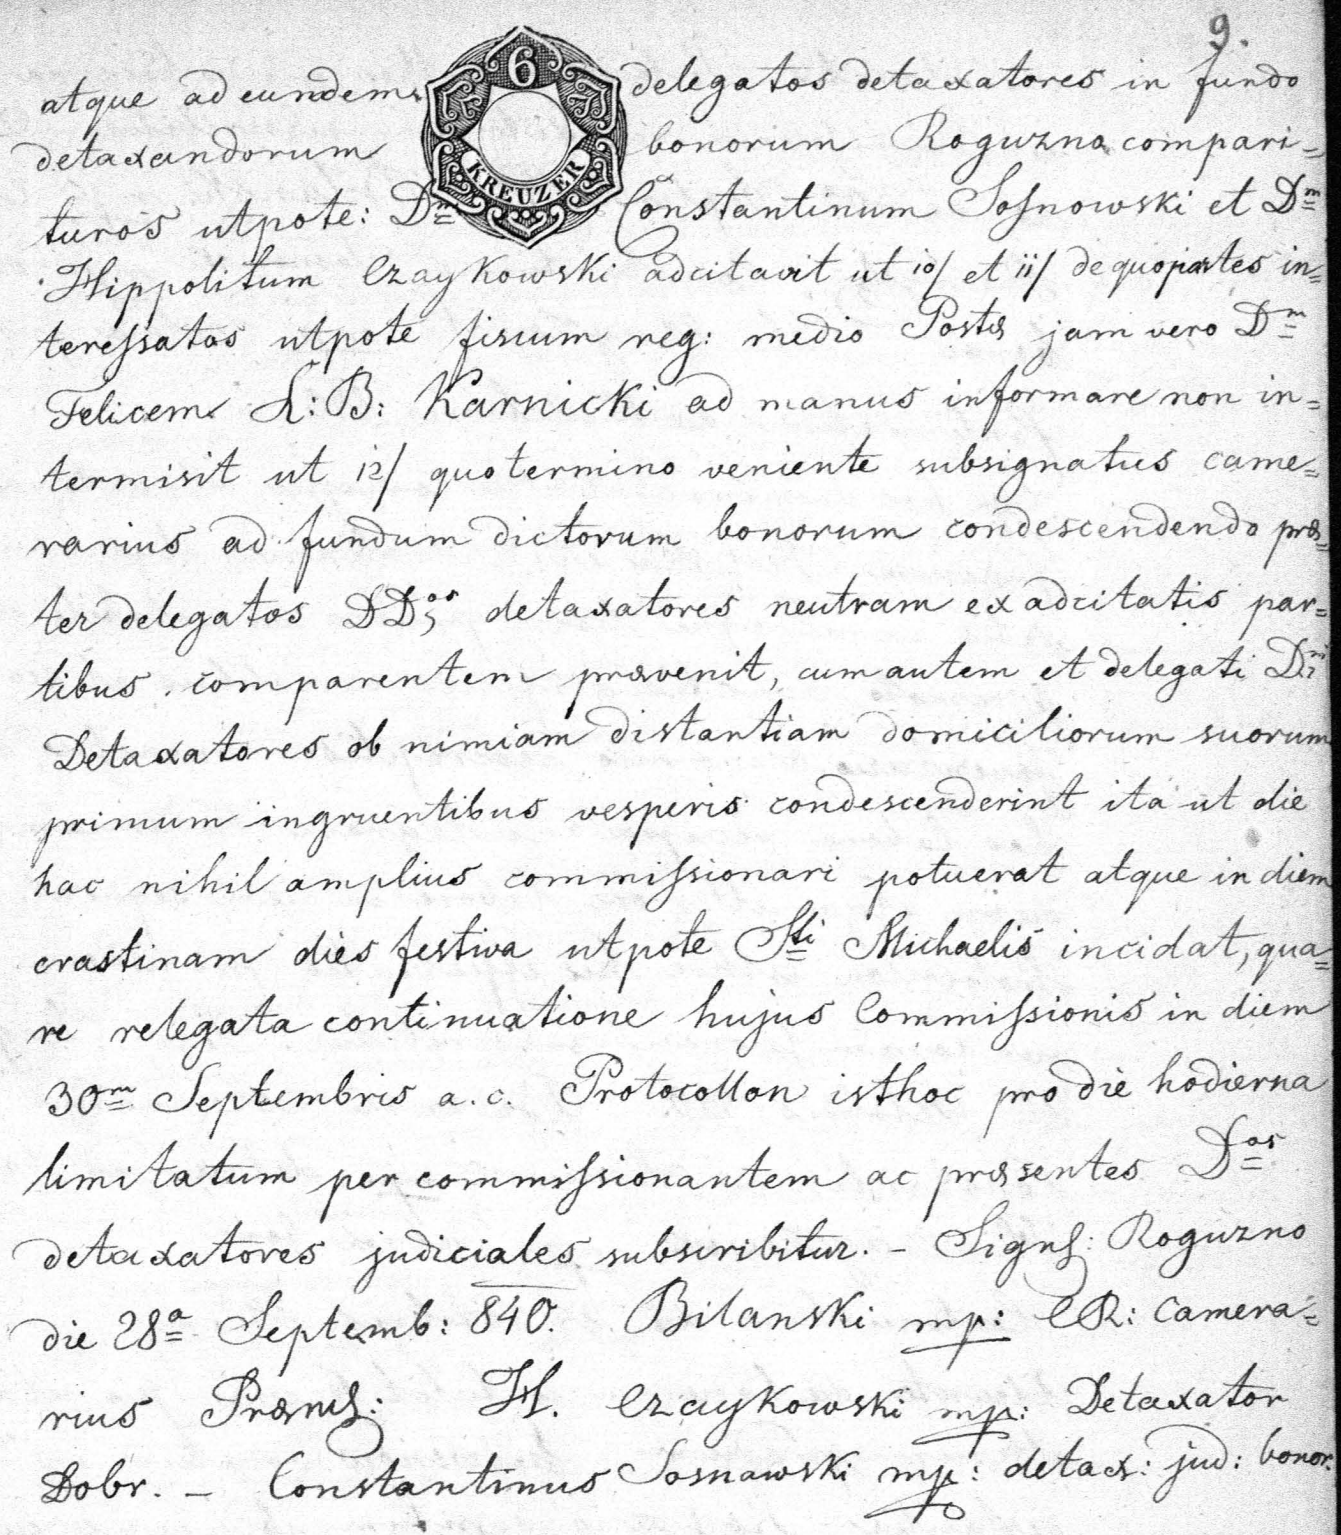 9.
6
KREUZER
atque ad eundem delegatos detaxatores in fundo
detaxandorum bonorum Roguzno compari=
turos utpote: Dm Constantinum Sosnowski et Dm
Hippolitum Czaykowski adcitavit ut 10/ et 11/ de quo partes in=
teressatas utpote fiscum reg: medio Postæ jam vero Dm
Felicem L: B: Karnicki ad manus informare non in=
termisit ut 12/ quo termino veniente subsignatus came=
rarius ad fundum dictorum bonorum condescendendo præ=
ter delegatos DDos detaxatores neutram ex adcitatis par=
tibus comparentem prævenit, cum autem et delegati Dni
Detaxatores ob nimiam distantiam domiciliorum suorum
primum ingruentibus vesperis condescenderint ita ut die
hac nihil amplius commissionari potuerat atque in diem
crastinam dies festiva utpote Sti Michaelis incidat, qua=
re relegata continuatione hujus Commissionis in diem
30m Septembris a. c. Protocollon isthoc pro die hodierna
limitatum per commissionantem ac præsentes Dos
detaxatores judiciales subscribitur. – Sign: Roguzno
die 28a Septemb: 840. Bilanski mp: CR: Camera=
rius Præms: H. Czaykowski mp: Detaxator
Dobr. – Constantinus Sosnowski mp: detax: jud: bonor: